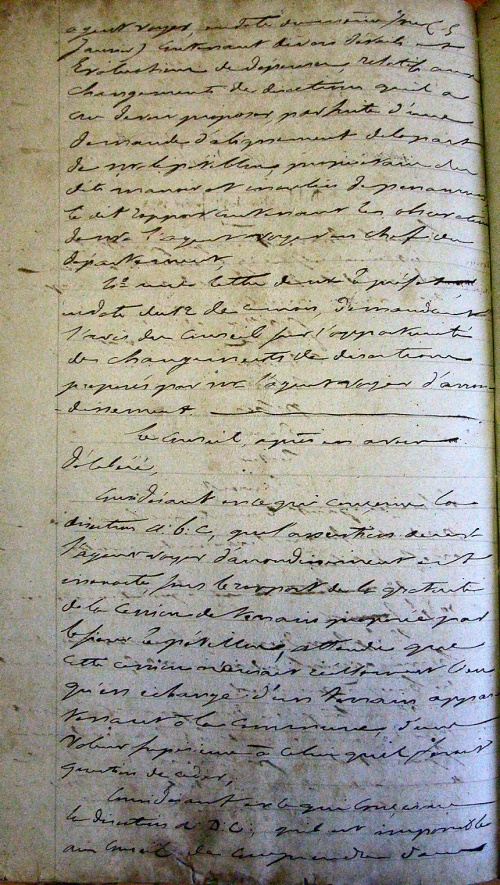 agent voyer, en date du même jour (5
Janvier) contenant devis détails et
Evaluation de dépenses, relatifs aux
changements de direction qu'il a
cru devoir proposer par suite d'une
demande d'alignement de la part
de mr lepetilleur, propriétaire du
dit manoir et
le dit rapport contenant les observations
de mr l'agent voyer en chef du
département,
2° une lettre de mr le préfet
en date du 12 de ce mois, demandant
l'avis du Conseil sur l'opportunité
des changements de directions
proposés par mr l'agent voyer d'arron-
dissement
Le Conseil, après en avoir
délibéré,
Considérant en ce qui concerne la
direction A. B. C, que l'assertion de mr
l'agent voyer d'arrondissement est
inexacte, sous le rapport de la gratuité
de la cession de terrain proposée par
le sieur Lepetilleur, attendu que
cette cession n'aurait lieu
qu'en échange d'un terrain appar
tenant à la commune, d'une
valeur supérieure à celui qu'il serait
question de céder,
Considérant en ce qui concerne
la direction A. D. C., qu'il est impossible
au Conseil de comprendre dans